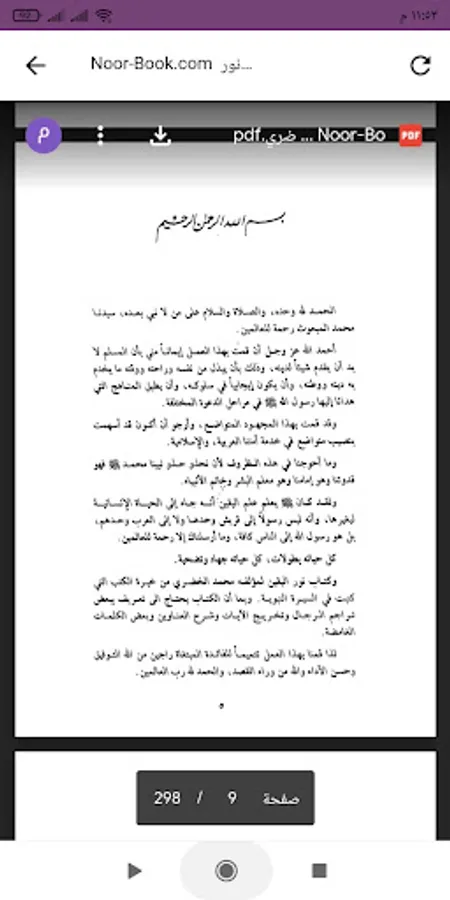 ١١:٥٢ م
Noor-Book.com نور...
م
Noor-Bo ... ضري.pdf
PDF
بسم الله الرحمن الرحيم
الحمد لله وحده، والصلاة والسلام على من لا نبي بعده، سيدنا
محمد المبعوث رحمة للعالمين.
أحمد الله عز وجل أن قمت بهذا العمل إيماناً مني بأن المسلم لا
بد أن يقدم شيئاً لدينه، وذلك بأن يبذل من نفسه وراحته ووقته ما يخدم
به دينه ووطنه، وأن يكون إيجابياً في سلوكه، وأن يطبق المناهج التي
هدانا إليها رسول الله ﷺ في مراحل الدعوة المختلفة.
وقد قمت بهذا المجهود المتواضع، وأرجو أن أكون قد أسهمت
بنصيب متواضع في خدمة أمتنا العربية، والإسلامية.
وما أحوجنا في هذه الظروف لأن نحذو حذو نبينا محمد ﷺ فهو
قدوتنا وهو إمامنا وهو معلم البشر وخاتم الأنبياء.
ولقد كان ﷺ يعلم علم اليقين أنه جاء إلى الحياة الإنسانية
ليغيرها، وأنه ليس رسولاً إلى قريش وحدها ولا إلى العرب وحدهم،
بل هو رسول الله إلى الناس كافة، وما أرسلناك إلا رحمة للعالمين.
كل حياته بطولات، كل حياته جهاد وتضحية.
وكتاب نور اليقين لمؤلفه محمد الخضري من خيرة الكتب التي
كتبت في السيرة النبوية. وبما أن الكتاب يحتاج الى تعريف ببعض
تراجم الرجال وتخريج الآيات وشرح العناوين وبعض الكلمات
الغامضة.
لذا قمنا بهذا العمل تتميماً للفائدة المبتغاة راجين من الله التوفيق
وحسن الأداء والله من وراء القصد، والحمد لله رب العالمين.
٥
صفحة 9 / 298